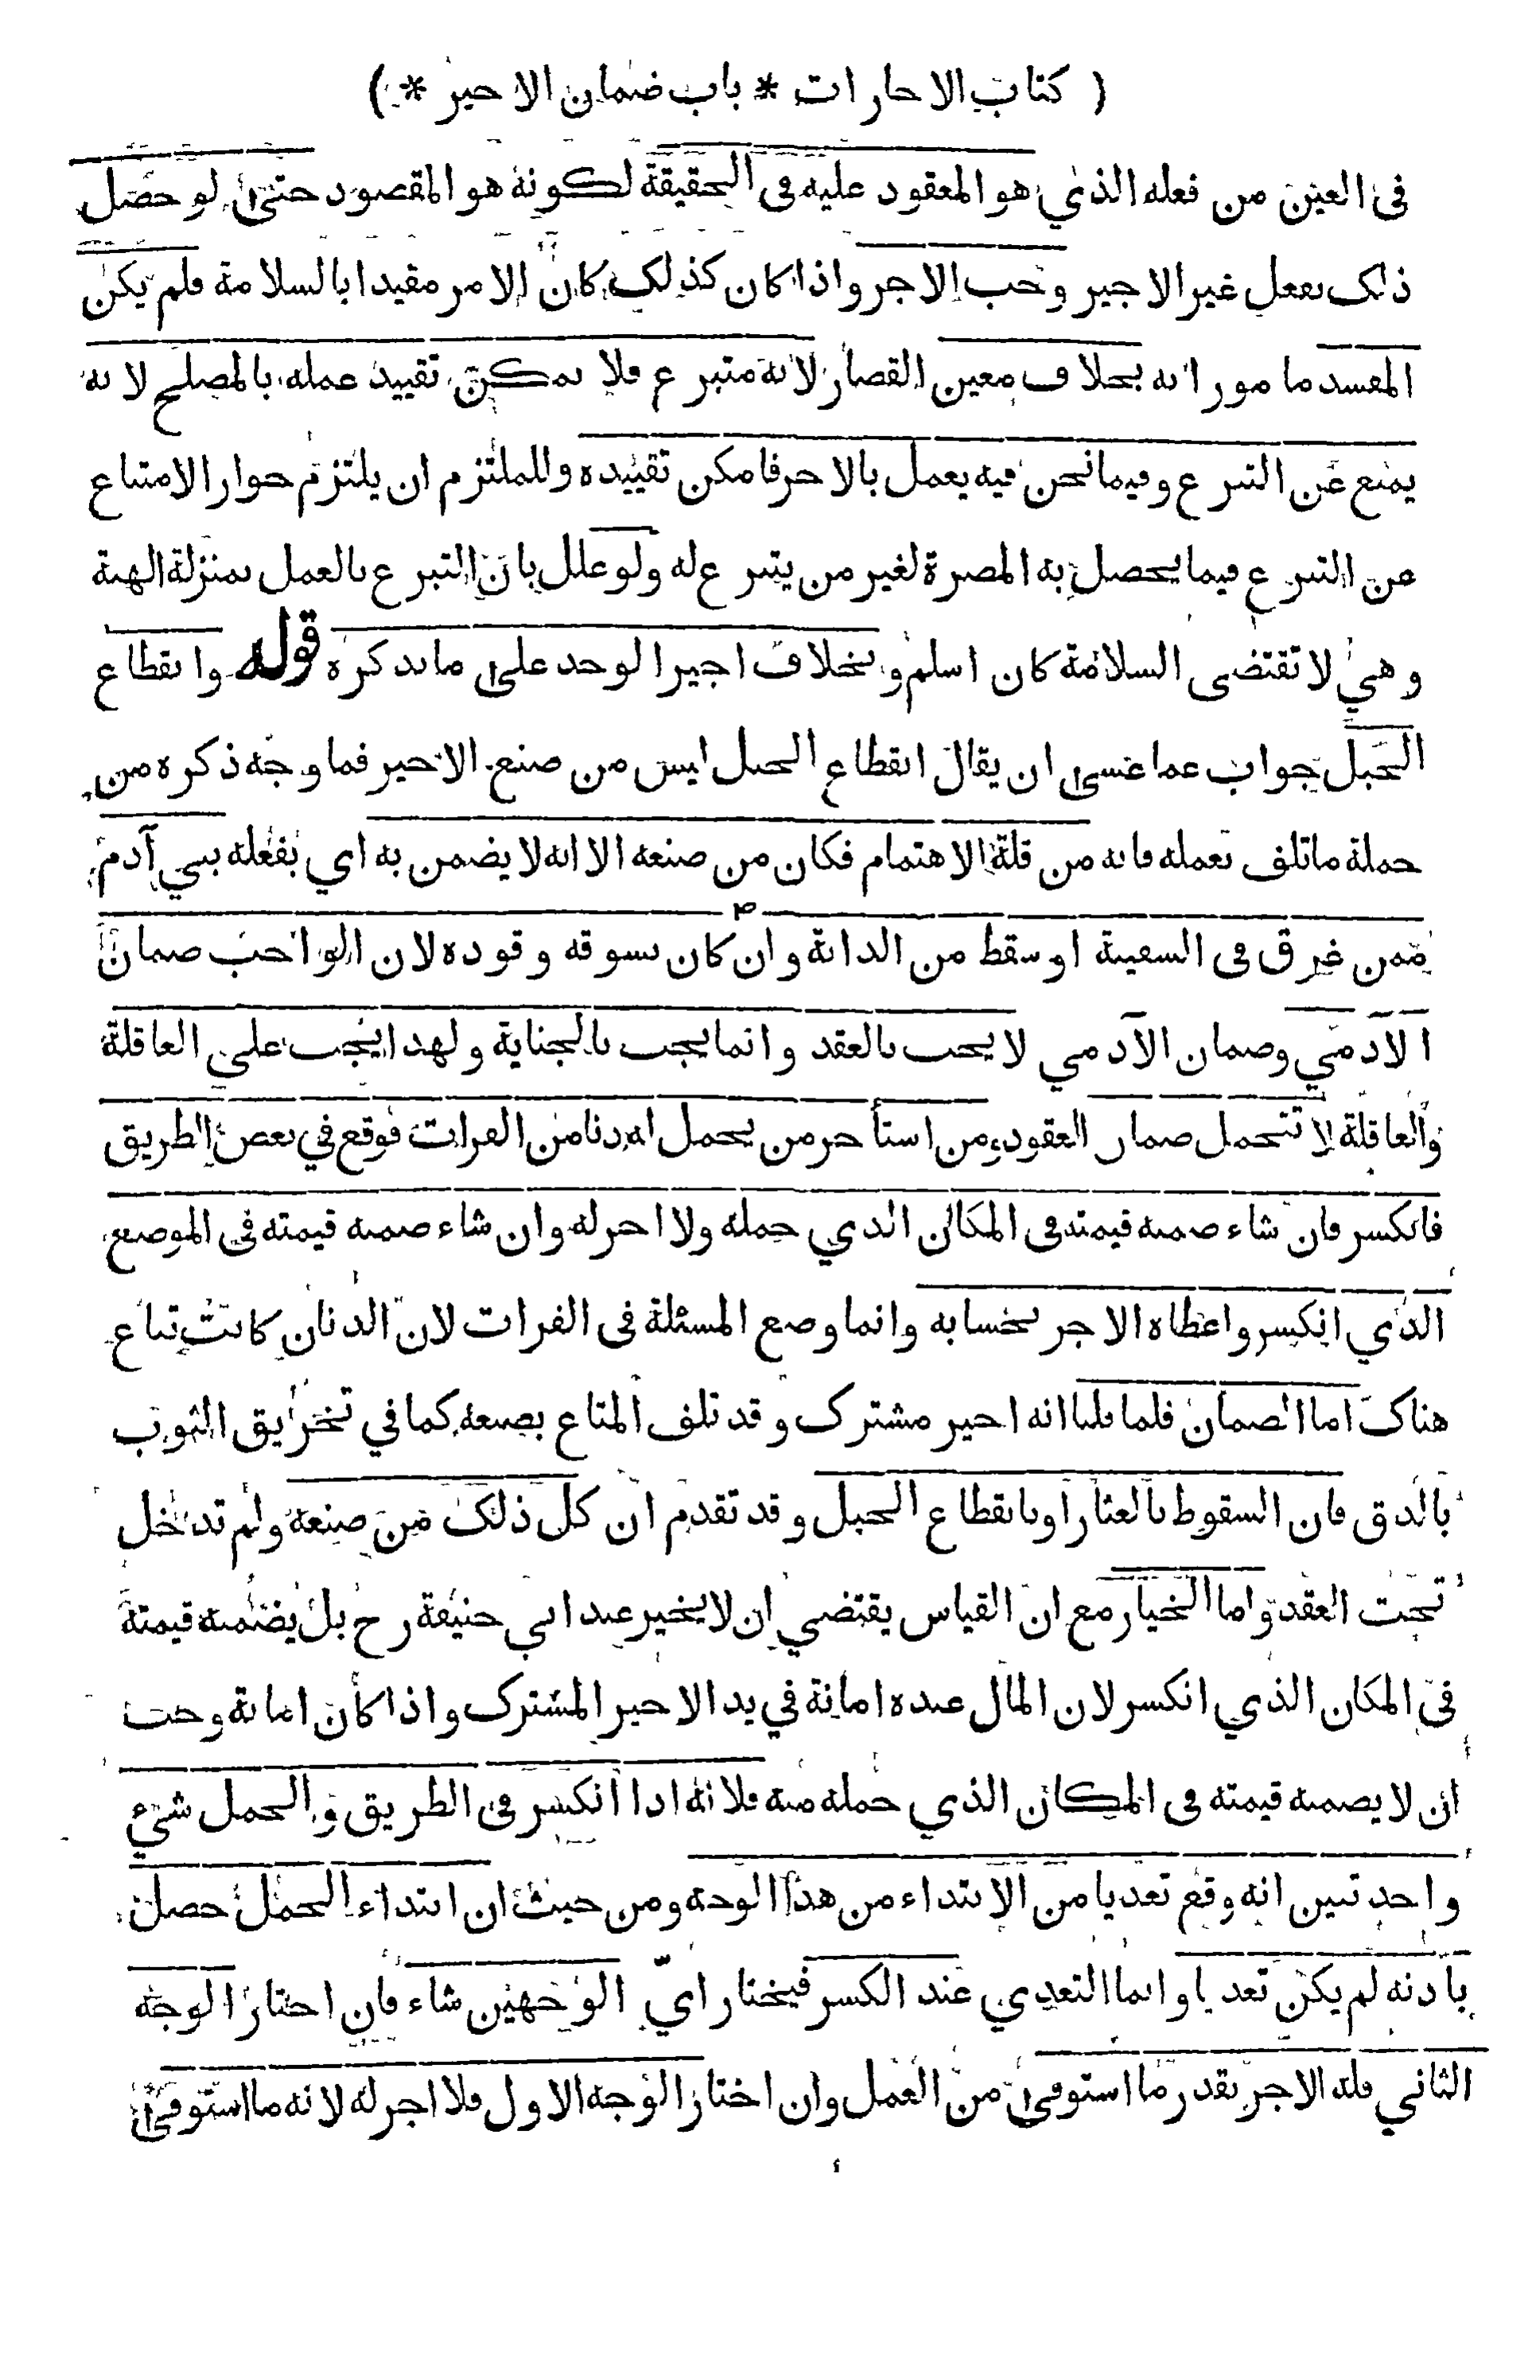 ( كتاب الاجارات * باب ضمان الاجير * )
فى العين من فعله الذي هو المعقود عليه فى الحقيقة لكونه هو المقصود حتى لو حصل
ذلك بفعل غير الاجير وجب الاجر واذا كان كذلك كان الامر مقيدا بالسلامة فلم يكن
المفسد مامورا به بخلاف معين القصار لانه متبرع فلا يمكن تقييد عمله بالمصلح لانه
يمنع عن التبرع وفيما نحن فيه يعمل بالاجر فامكن تقييده وللملتزم ان يلتزم جواز الامتناع
عن التبرع فيما يحصل به المضرة لغير من يتبرع له ولو علل بان التبرع بالعمل بمنزلة الهبة
وهي لا تقتضى السلامة كان اسلم وبخلاف اجير الوحد على ما نذكره قوله وانقطاع
الحبل جواب عما عسى ان يقال انقطاع الحبل ليس من صنع الاجير فما وجه ذكره من
جملة ما تلف بعمله فانه من قلة الاهتمام فكان من صنعه الا انه لا يضمن به اي بفعله بني آدم
ممن غرق فى السفينة او سقط من الدابة وان كان بسوقه وقوده لان الواجب ضمان
الآدمي وضمان الآدمي لا يجب بالعقد وانما يجب بالجناية ولهذا يجب على العاقلة
والعاقلة لا تتحمل ضمان العقود ومن استأجر من يحمل له دنا من الفرات فوقع في بعض الطريق
فانكسر فان شاء ضمنه قيمته فى المكان الذي حمله ولا اجر له وان شاء ضمنه قيمته فى الموضع
الذي انكسر واعطاه الاجر بحسابه وانما وضع المسئلة فى الفرات لان الدنان كانت تباع
هناك اما الضمان فلما قلنا انه اجير مشترك وقد تلف المتاع بصنعه كما في تخريق الثوب
بالدق فان السقوط بالعثار او بانقطاع الحبل وقد تقدم ان كل ذلك من صنعه ولم تدخل
تحت العقد واما الخيار مع ان القياس يقتضي ان لا يخير عند ابي حنيفة رح بل يضمنه قيمته
فى المكان الذي انكسر لان المال عنده امانة في يد الاجير المشترك واذا كان امانة وجب
ان لا يضمنه قيمته فى المكان الذي حمله منه فلانه اذا انكسر فى الطريق والحمل شيء
واحد تبين انه وقع تعديا من الابتداء من هذا الوجه ومن حيث ان ابتداء الحمل حصل
باذنه لم يكن تعديا وانما التعدي عند الكسر فيختار ايّ الوجهين شاء فان اختار الوجه
الثاني فله الاجر بقدر ما استوفى من العمل وان اختار الوجه الاول فلا اجر له لانه ما استوفى